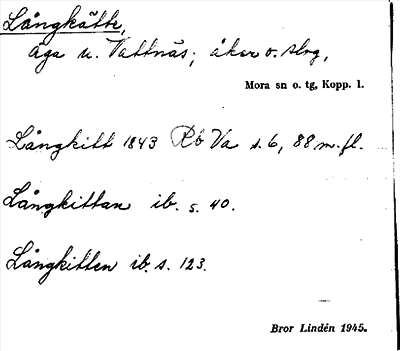 Långkätte,
äga u. Vattnäs; åker o. skog,
Mora sn o. tg, Kopp. l.
Långkitt 1843 Rb Va s. 6, 88 m. fl.
Långkittan ib. s. 40.
Långkitten ib. s. 123.
Bror Lindén 1945.